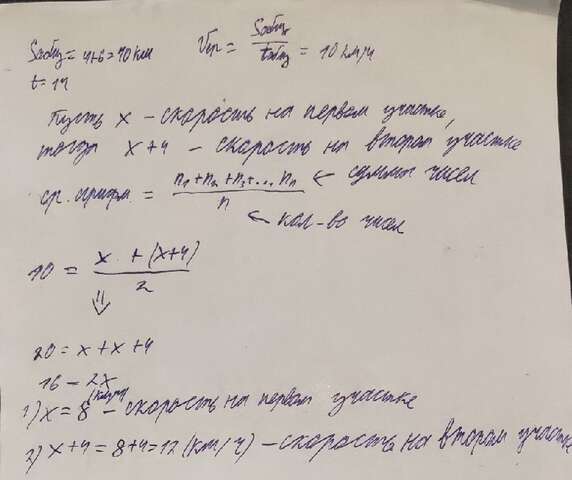 Sобщ = 4+6 = 10 км   Vср = Sобщ / tобщ = 10 км/ч
t = 1ч
Пусть x – скорость на первом участке,
тогда x+4 – скорость на втором участке
ср. арифм = n₁+n₂+n₃+... nₙ / n ← сумма чисел
← кол-во чисел
10 = x + (x+4) / 2
⇓
20 = x + x + 4
16 – 2x
1) x = 8 (км/ч) – скорость на первом участке
2) x+4 = 8+4 = 12 (км/ч) – скорость на втором участке